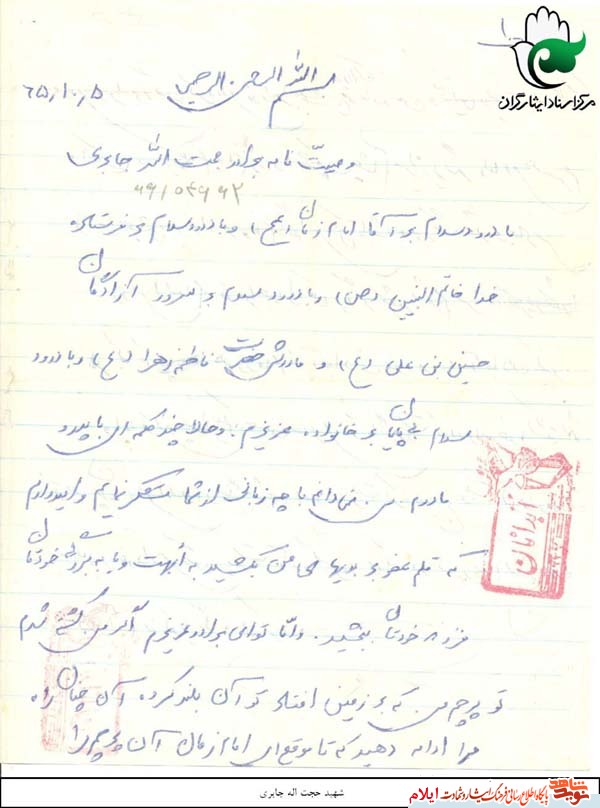 مرکز اسناد ایثارگران
بسم الله الرحمن الرحیم
۶۵/۱۰/۵
وصیت نامه برادر حجت الله جابری
با درود و سلام بر آقا امام زمان (عج) و با درود و سلام بر فرستاده
خدا خاتم النبین (ص) و با درود و سلام بر سرور آزادگان
حسین بن علی (ع) و مادرش حضرت فاطمه زهرا (ع) و با درود
سلام بی پایان بر خانواده عزیزم. و حالا چند کلمه ای با پدر و
مادرم. من نمی دانم با چه زبانی از شما تشکر نمایم و امیدوارم
که قلم عفو بر بدیها ی من بکشید به أبهت و یا به بزرگی خودتان
فرزند خودتان ببخشید. و امّا تو ای برادر عزیزم اگر من کشته شدم
تو پرچم من که بر زمین افتاد تو آن بلند کرده آن چنان راه
مرا ادامه دهید که تا موقع ای امام زمان آن پرچم را
شهید حجت اله جابری
نوید شاهد
پایگاه اطلاع رسانی فرهنگ ایثار و شهادت ایلام